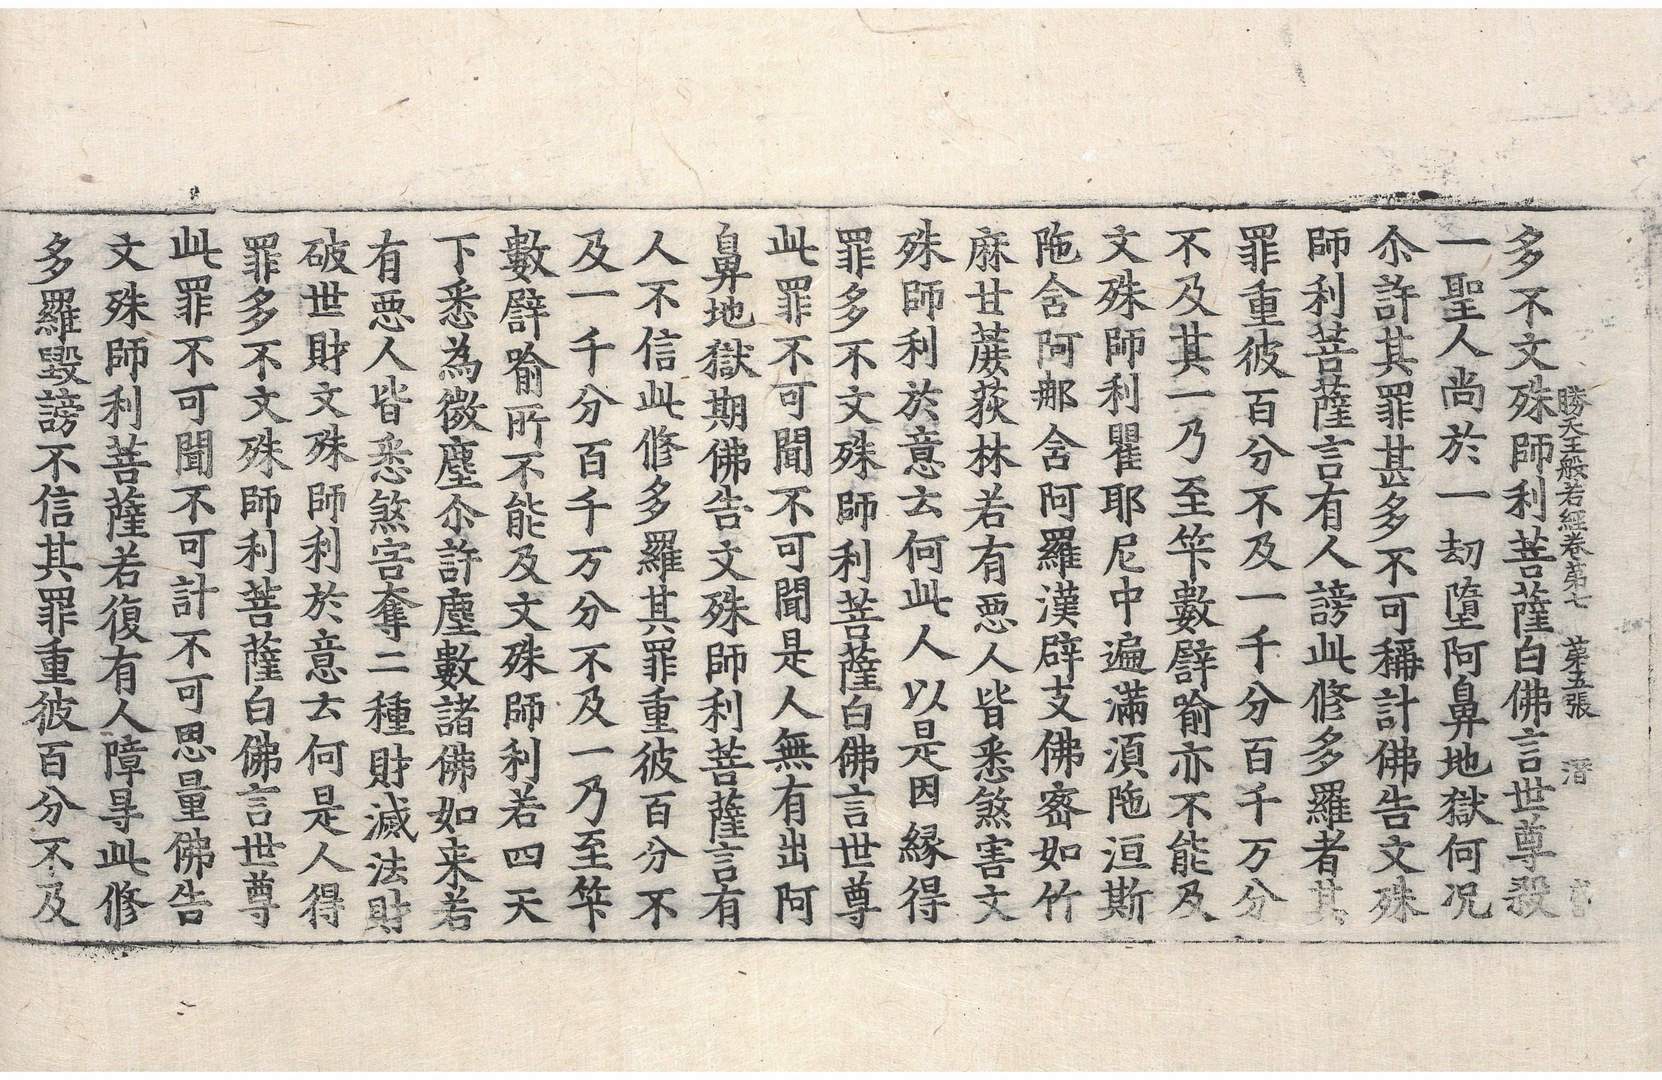 勝天王般若經卷第七　第五張　潛
多不文殊師利菩薩白佛言世尊殺
一聖人尚於一劫墮阿鼻地獄何况
尒許其罪甚多不可稱計佛告文殊
師利菩薩言有人謗此修多羅者其
罪重彼百分不及一千分百千万分
不及其一乃至筭數譬喻亦不能及
文殊師利瞿耶尼中遍滿湏陁洹斯
陁含阿那含阿羅漢辟支佛密如竹
麻甘蔗荻林若有悪人皆悉煞害文
殊師利於意云何此人以是因緣得
罪多不文殊師利菩薩白佛言世尊
此罪不可聞不可聞是人無有出阿
鼻地獄期佛告文殊師利菩薩言有
人不信此修多羅其罪重彼百分不
及一千分百千万分不及一乃至筭
數譬喻所不能及文殊師利若四天
下悉為微塵尒許塵數諸佛如来若
有悪人皆悉煞害奪二種財滅法財
破世財文殊師利於意云何是人得
罪多不文殊師利菩薩白佛言世尊
此罪不可聞不可計不可思量佛告
文殊師利菩薩若復有人障㝵此修
多羅毀謗不信其罪重彼百分不及